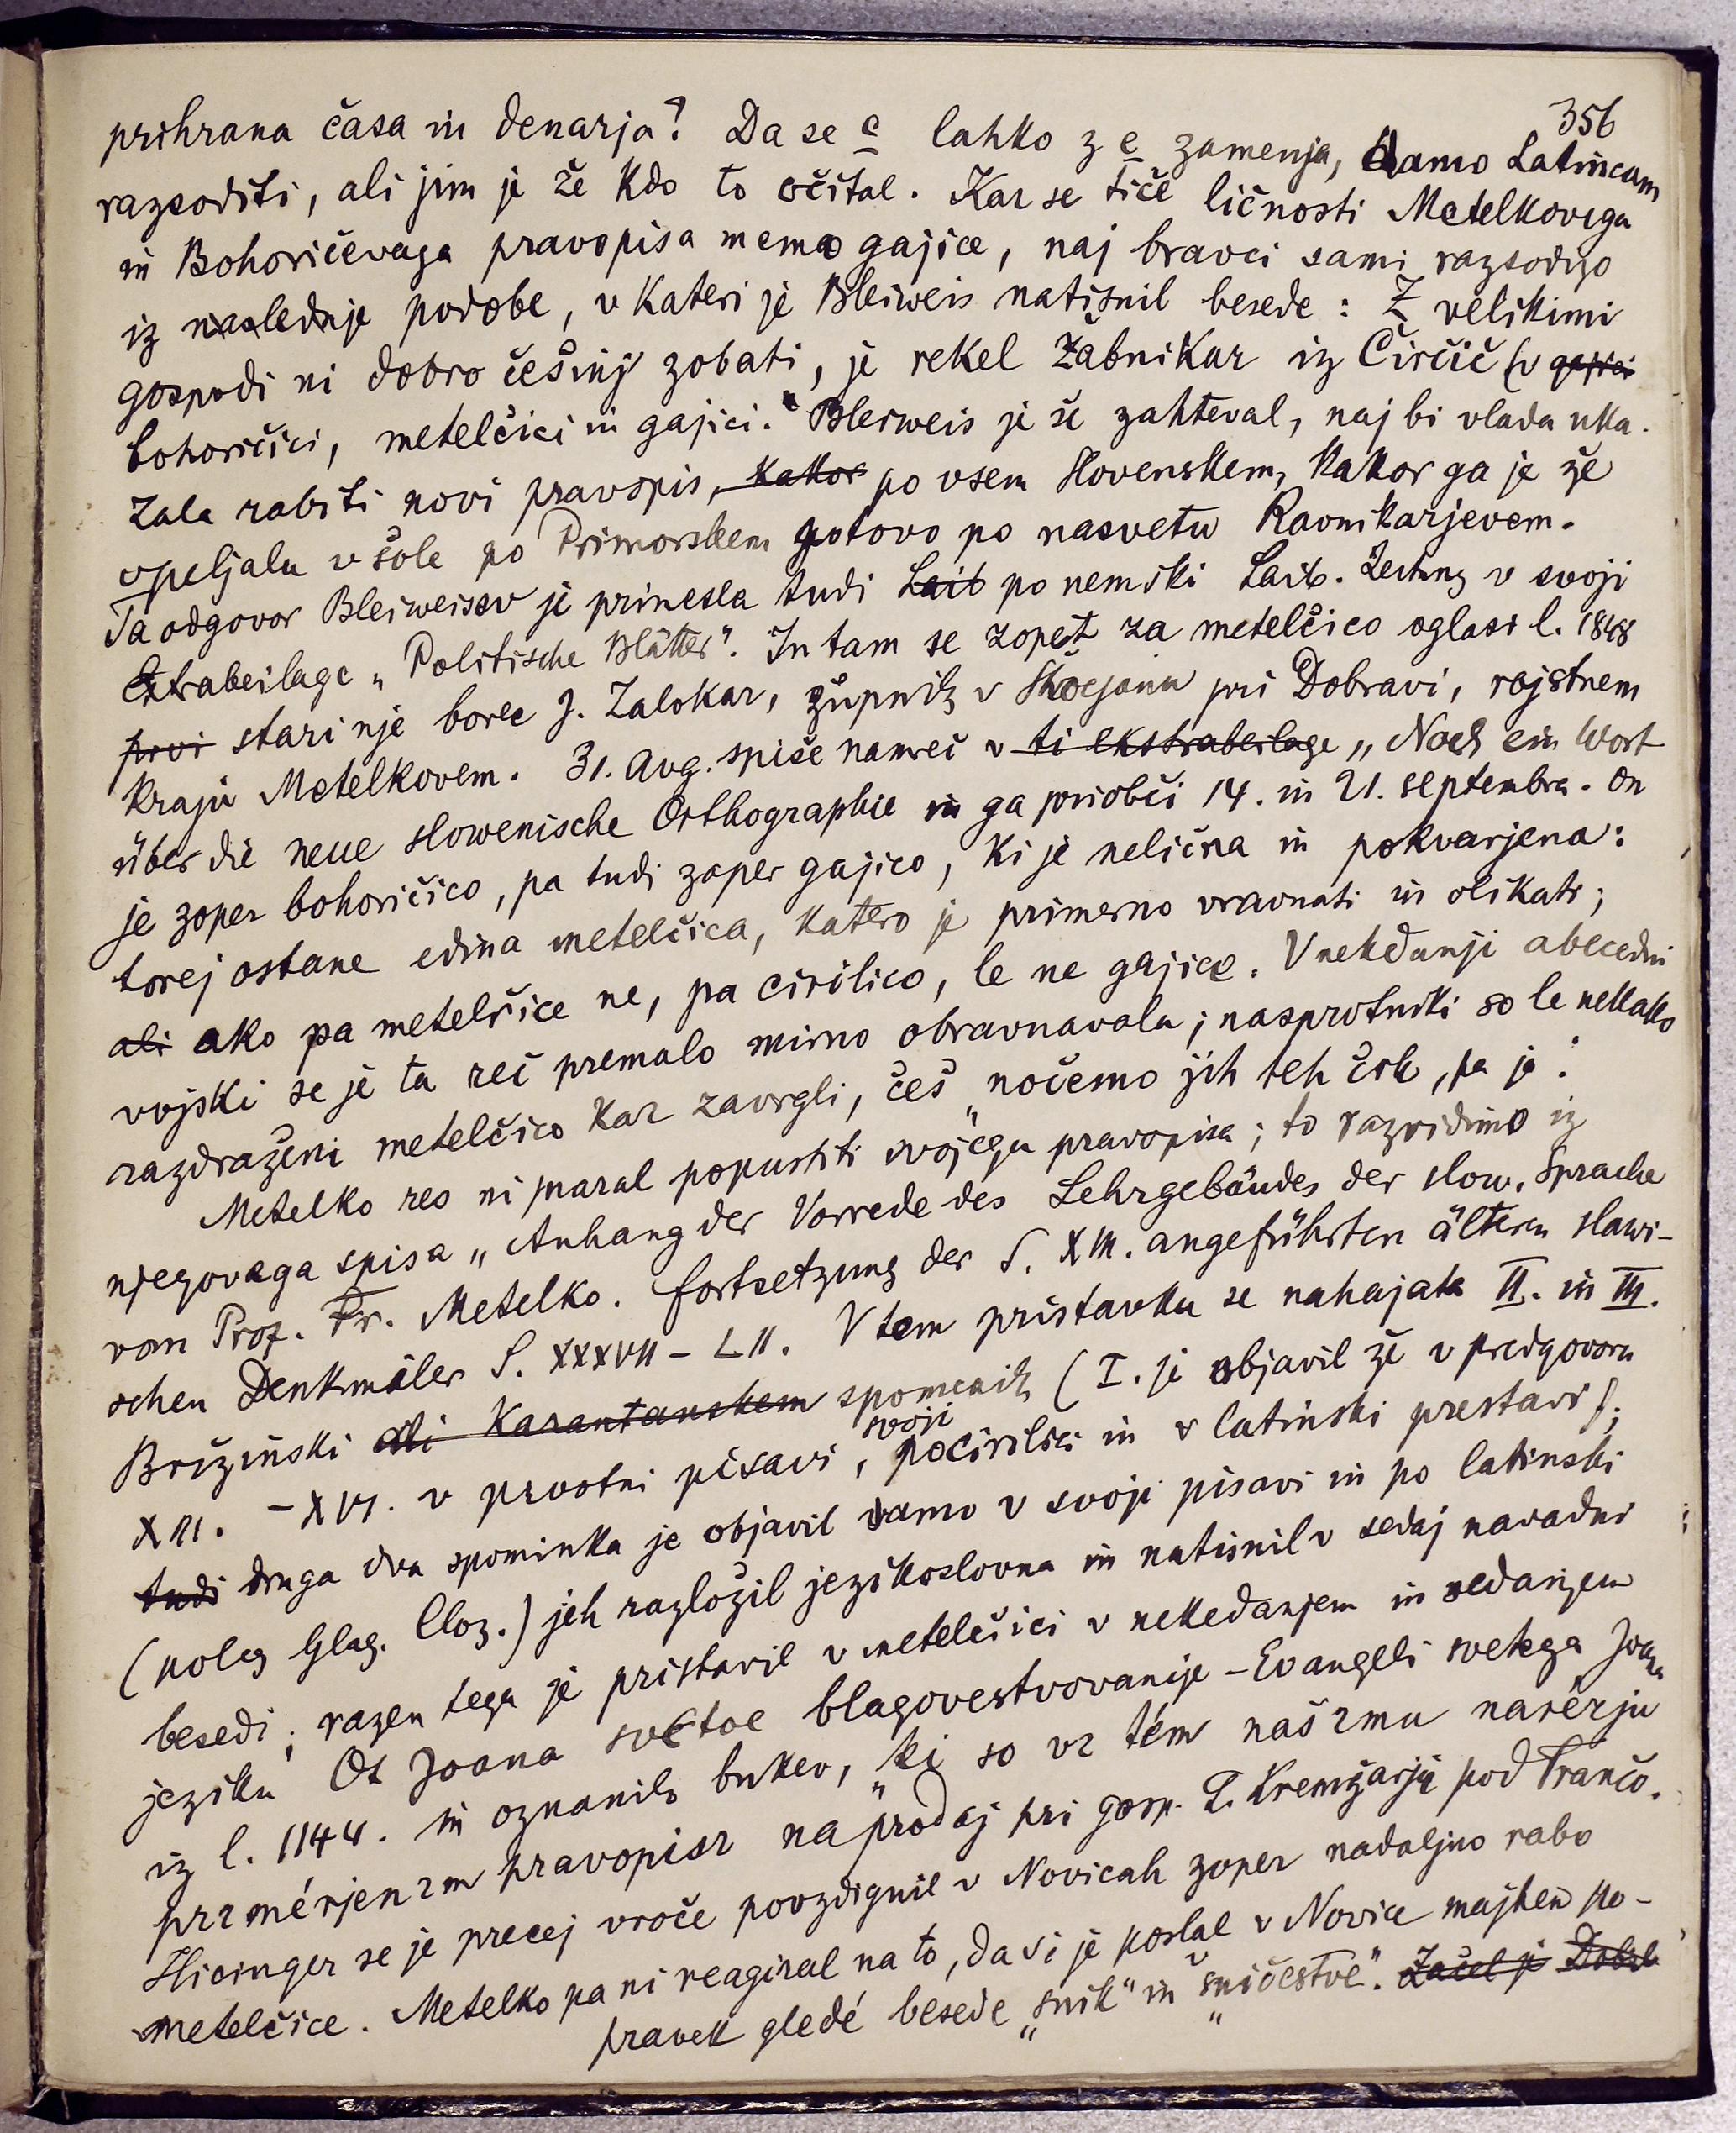 356
prihrana časa in denarja? Da se c lahko z e zamenja, damo Latincam
razsoditi, ali jim je že kdo to očital. Kar se tiče ličnosti Metelkovega
in Bohoričevega pravopisa memo gajice, naj bravci sami razsodijo
iz naslednje podobe, v kateri je Bleiweis natisnil besede: Z velikimi
gospodi ni dobro češinj zobati, je rekel Žabnikar iz Čirčič (v gajici
bohoričici, metelčici in gajici." Bleiweis je še zahteval, naj bi vlada uka-
zala rabiti novi pravopis, kakor po vsem Slovenskem, kakor ga je že
vpeljala v šole po Primorskem gotovo po nasvetu Ravnikarjevem.
Ta odgovor Bleiweisov je prinesla tudi Laib po nemški Laib. Zeitung v svoji
Extrabeilage „Politische Blätter". In tam se zopet za metelčico oglasi l. 1848
prvi starinje borec J. Zalokar, župnik v Škocjanu pri Dobravi, rojstnem
kraju Metelkovem. 31. Avg. spiše namreč v ti ekstrabeilage „Noch ein Wort
über die neue slowenische Orthographie in ga priobči 14. in 21. septembra. On
je zoper bohoričico, pa tudi zoper gajico, ki je nelična in pokvarjena:
torej ostane edina metelčica, katero je primerno vravnati in olikati;
ali ako pa metelčice ne, pa cirilico, le ne gajice. V nekdanji abecedni
vojski se je ta reč premalo mirno obravnavala; nasprotniki so le nekako
razdraženi metelčico kar zavrgli, češ „nočemo jih teh črk, pa je".
Metelko res ni maral popustiti svojega pravopisa; to razvidimo iz
njegovega spisa „Anhang der Vorrede des Lehrgebäudes der slow. Sprache
von Prof. Fr. Metelko. Fortsetzung der S. XIII. angeführten ältern slawi-
schen Denkmäler S. XXXVII - LII. V tem pristavku se nahajata II. in III.
Brižinski ali Karantanskem spomenik (I. je objavil že v predgovoru
XIII. - XVI. v prvotni pisavi, svoji po cirilici in v latinski prestavi);
tudi druga dva spominka je objavil samo v svoji pisavi in po latinski
(poleg Glag. Cloz.) jeh razložil jezikoslovno in natisnil v sedaj navadni
besedi; razen tega je pristavil v metelčici v nekedanjem in sedanjem
jeziku Ot Joana svetoe blagovestvovanije - Evangeli svetega Joana
iz l. 1144. in oznanilo bukev, „ki so vz tém našzmu narérju
przmérjenzm pravopisz naprodaj pri gosp. L. Kremžarju pod Trančo.
Hicinger se je precej vroče povzdignil v Novicah zoper nadaljno rabo
metelčice. Metelko pa ni reagiral na to, da si je poslal v Novice majhen po-
pravek gledé besede „snik" in „sničestvo". Začel je Dobil